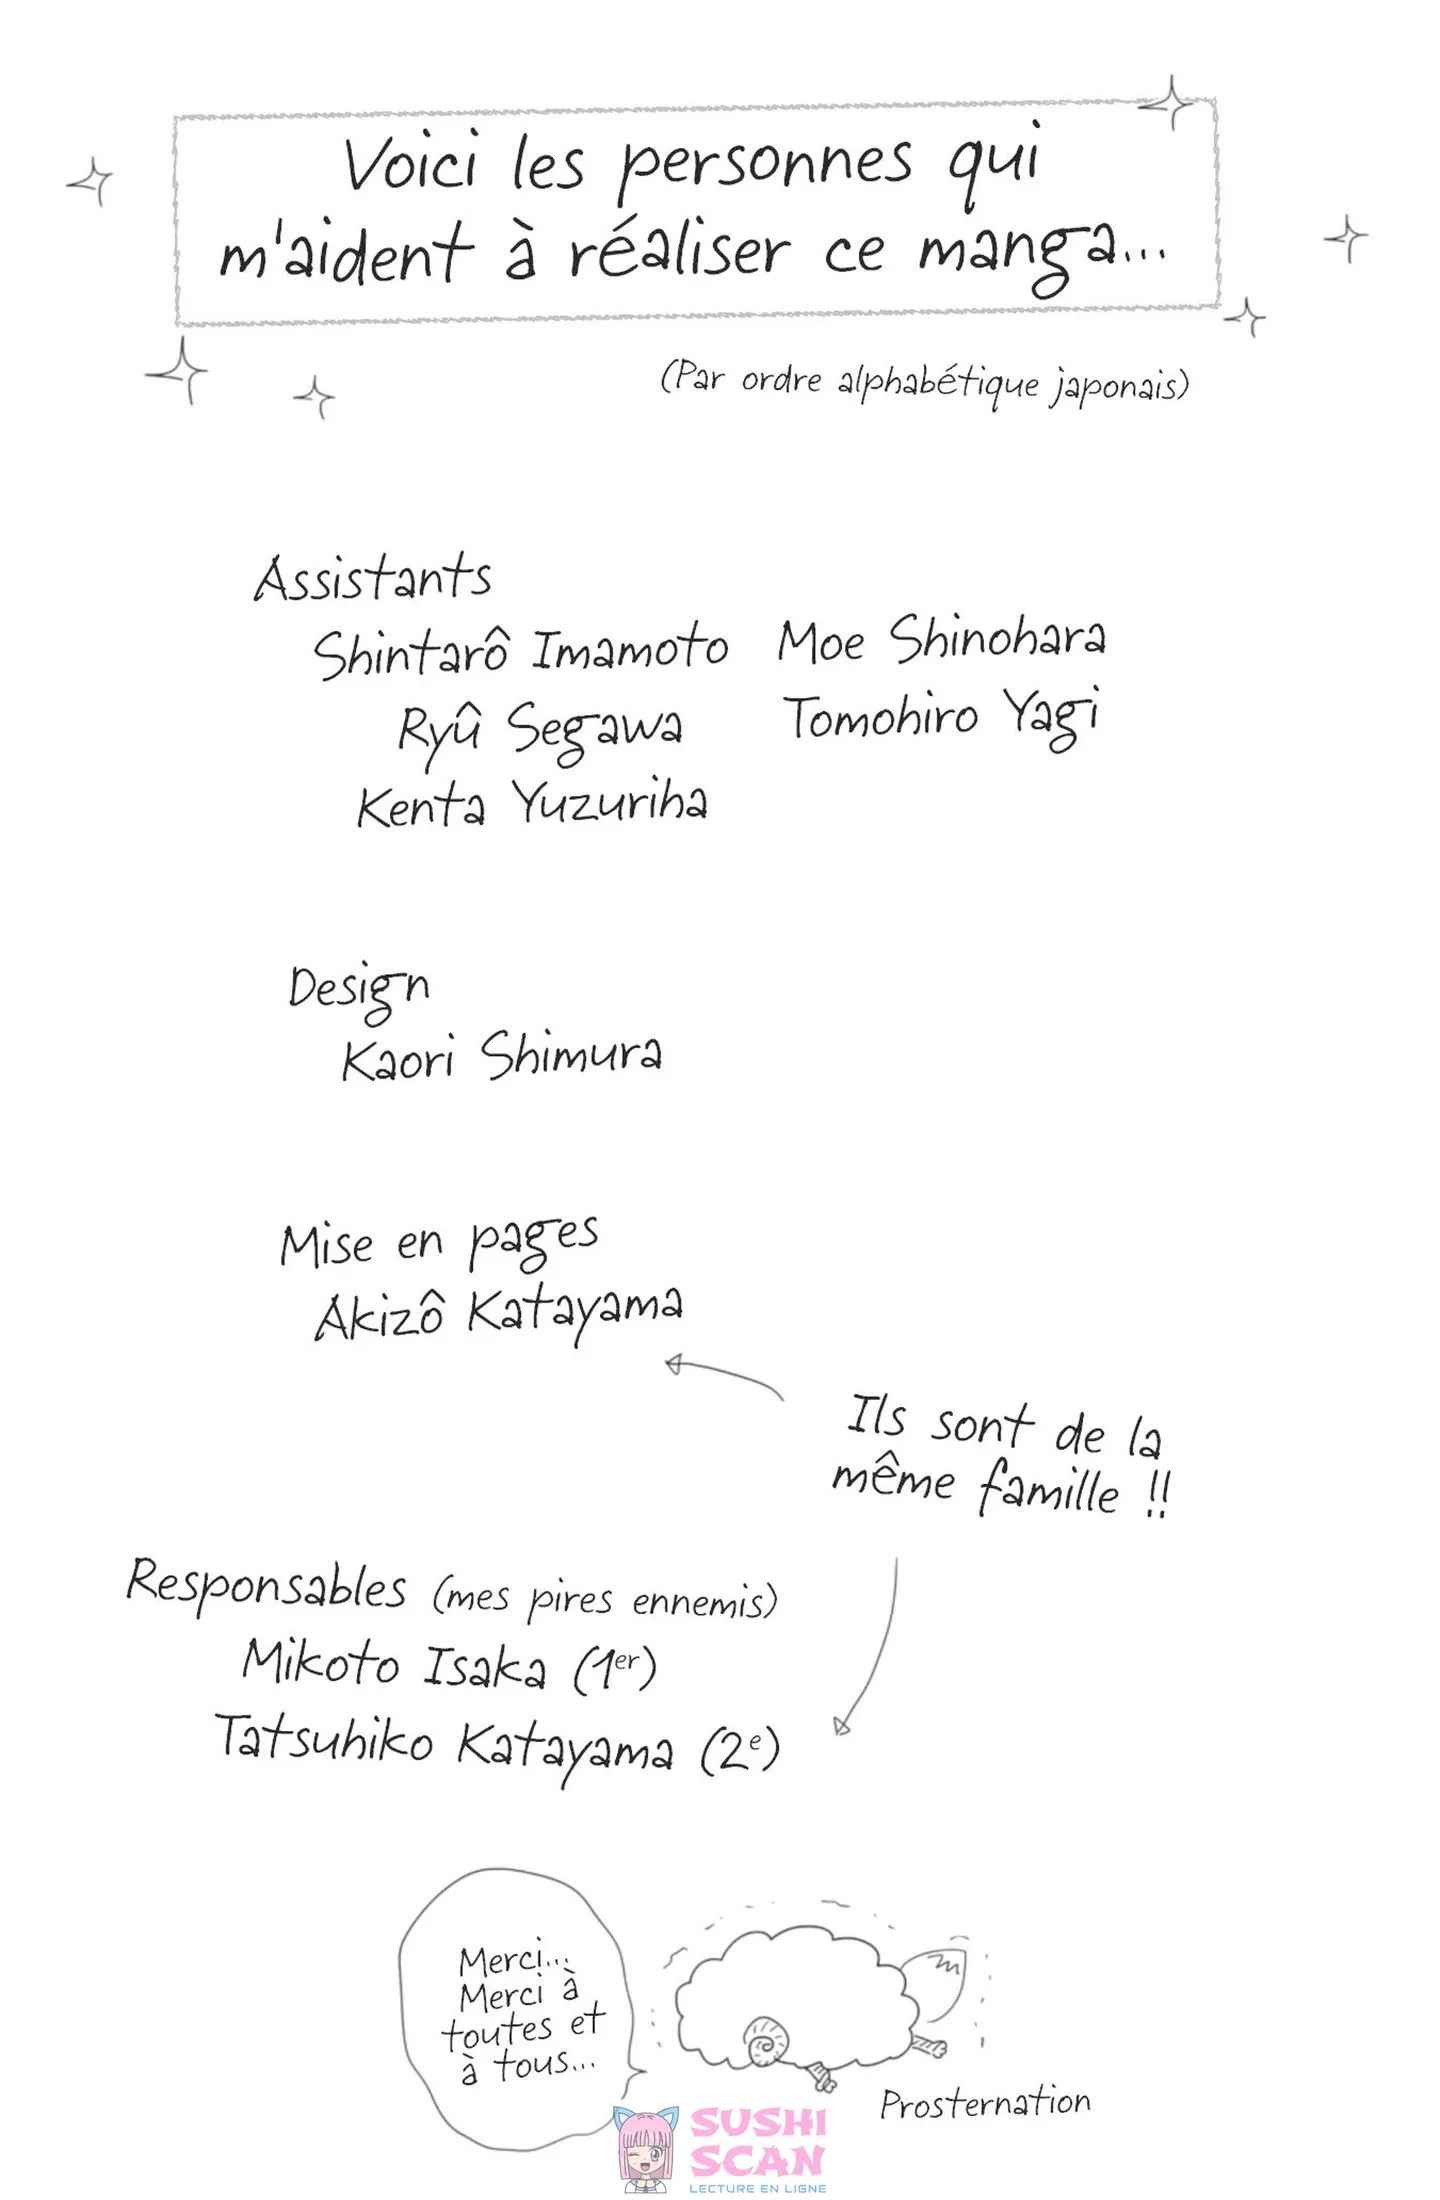 Voici les personnes qui
m'aident à réaliser ce manga...
(Par ordre alphabétique japonais)
Assistants
Shintarô Imamoto
Moe Shinohara
Ryû Segawa
Tomohiro Yagi
Kenta Yuzuriha
Design
Kaori Shimura
Mise en pages
Akizô Katayama
Ils sont de la
même famille !!
Responsables (mes pires ennemis)
Mikoto Isaka (1er)
Tatsuhiko Katayama (2e)
Merci...
Merci à
toutes et
à tous...
Prosternation
SUSHI
SCAN
LECTURE EN LIGNE